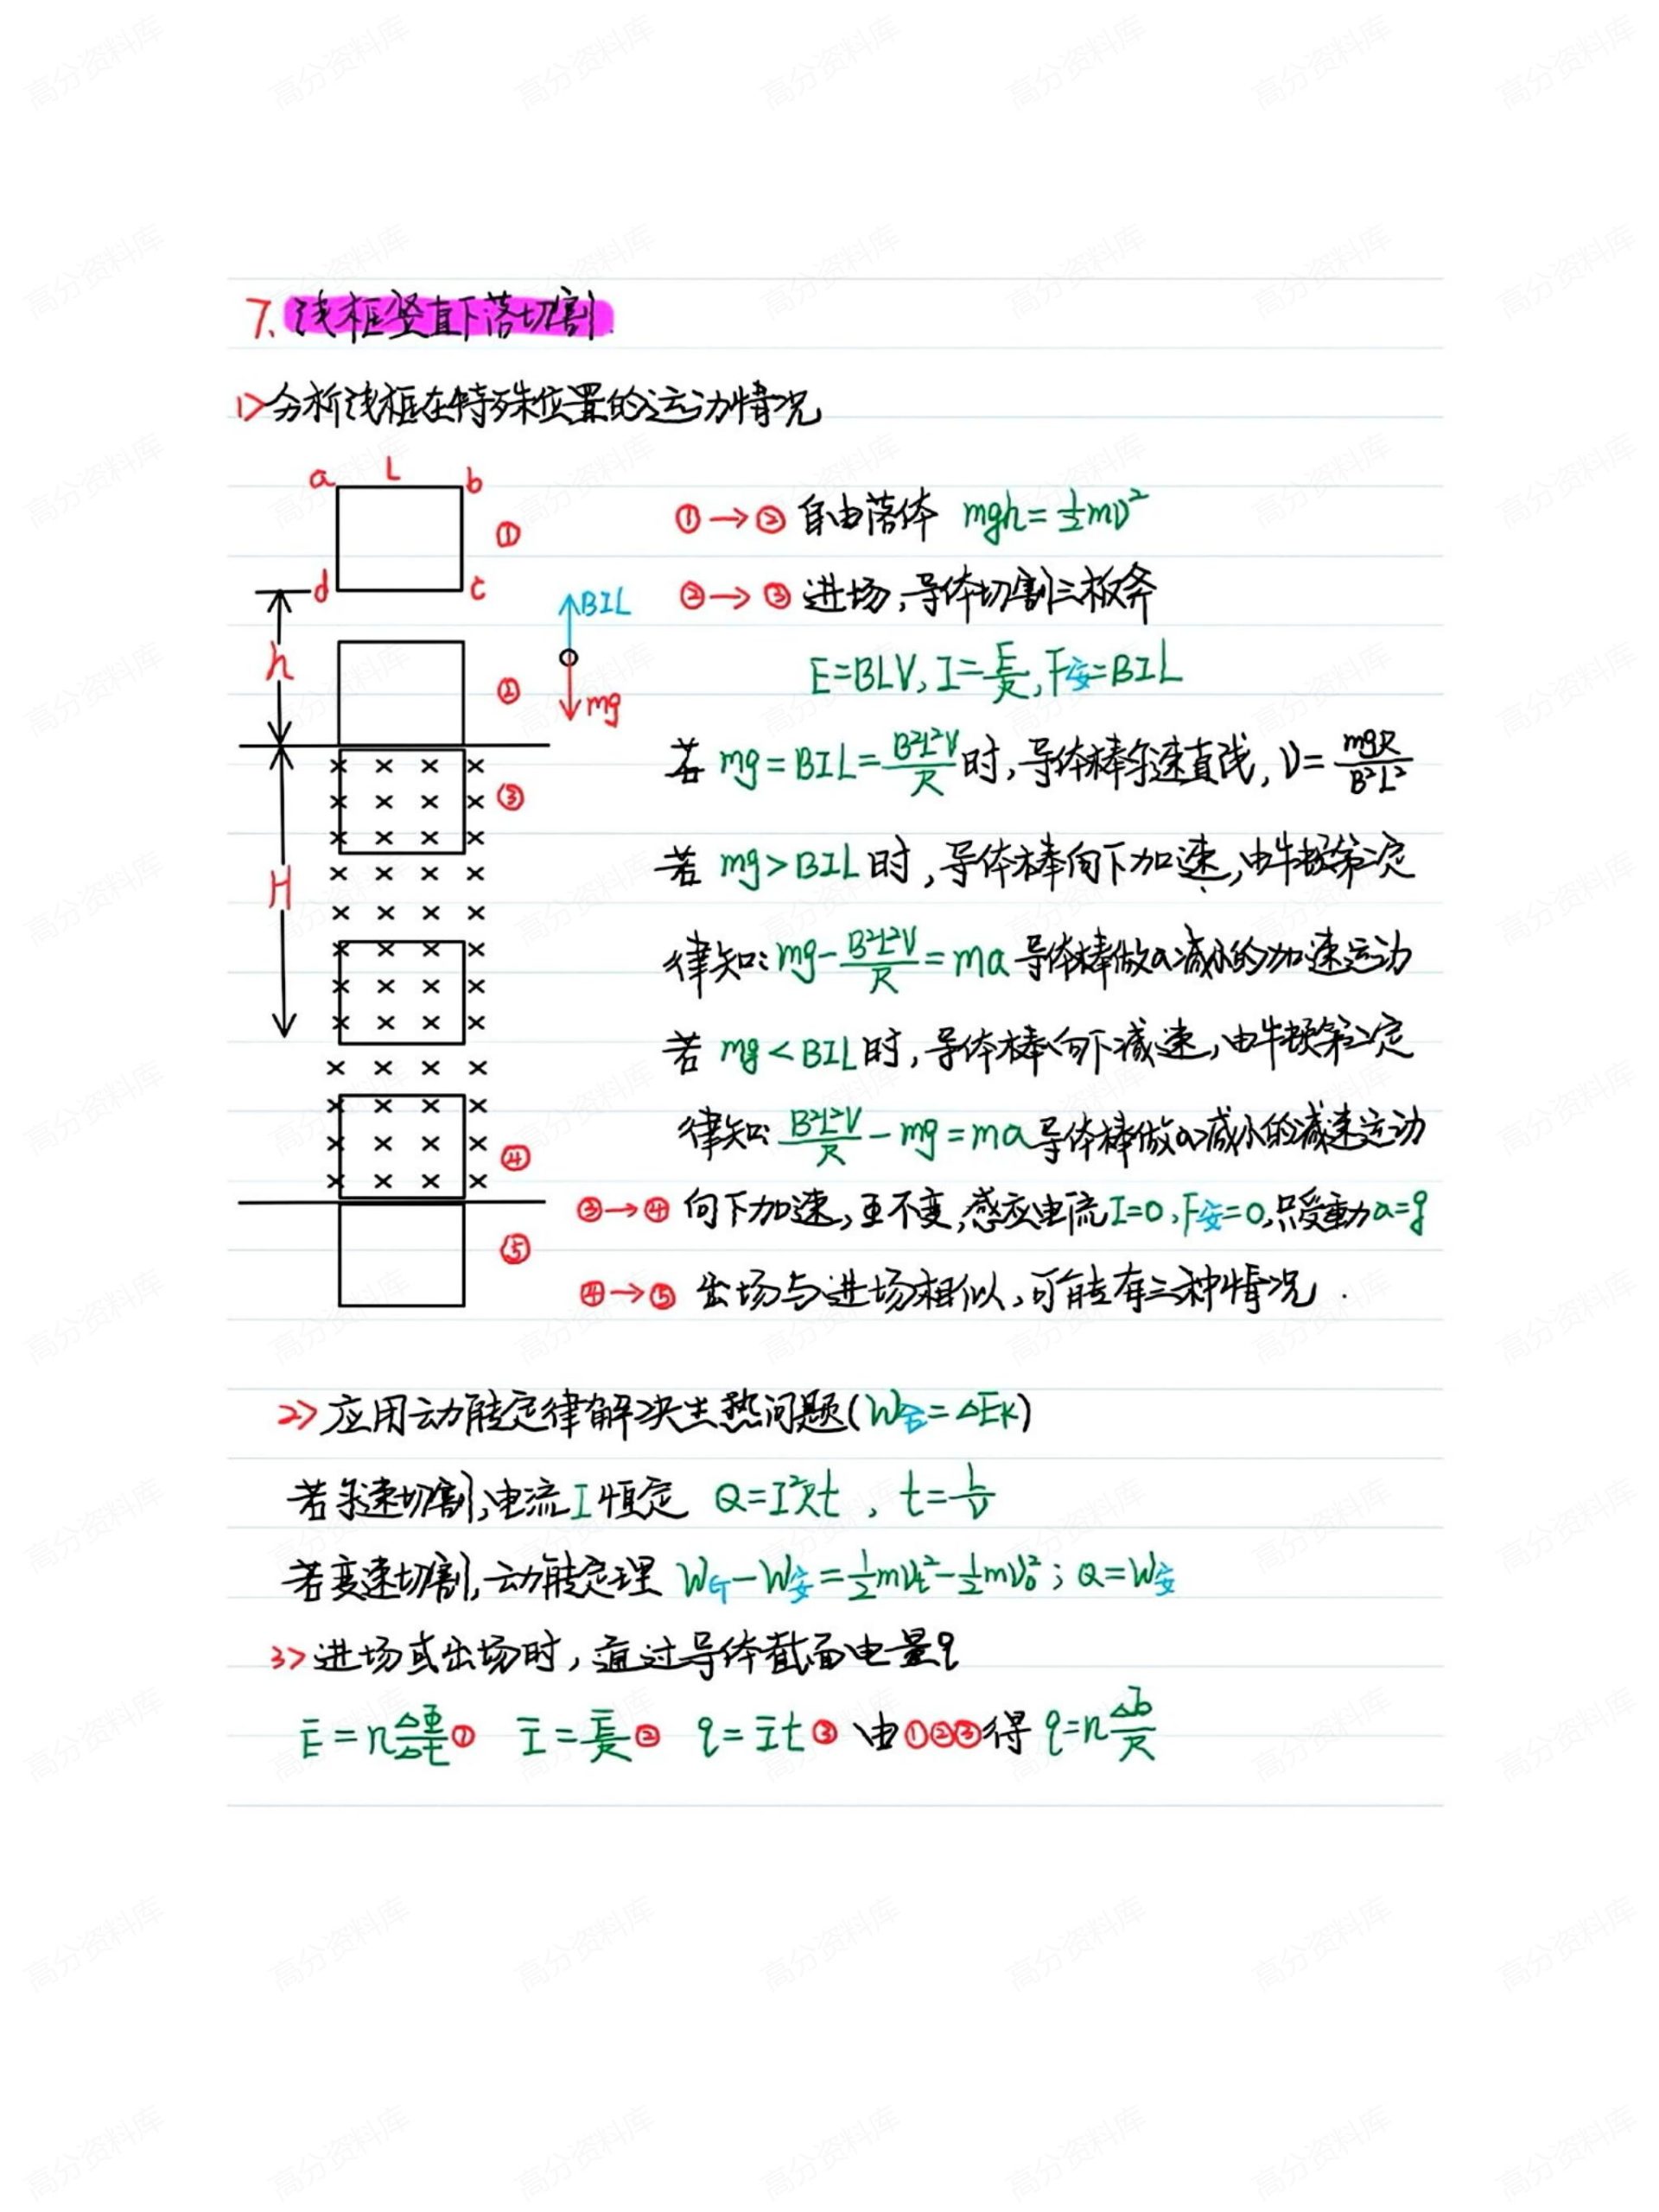 7、线框竖直下落切割
1>分析线框在特殊位置的运动情况
a L b
①
d c
①→② 自由落体 mgh=½mv²
h
②
BIL
mg
②→③ 进场,导体切割三板斧
E=BLV, I=E/R, F安=BIL
若 mg=BIL=B²L²V/R 时,导体棒匀速直线, v=mgR/B²L²
③
H
若 mg>BIL 时,导体棒向下加速,由牛顿第二定
律知: mg-B²L²V/R=ma 导体棒做a减小的加速运动
若 mg<BIL时,导体棒向下减速,由牛顿第二定
律知: B²L²V/R-mg=ma 导体棒做a减小的减速运动
④
③→④ 向下加速,Φ不变,感应电流I=0,F安=0,只受重力a=g
⑤
④→⑤ 出场与进场相似,可能有三种情况.
2>应用动能定律解决生热问题(W合=ΔEk)
若匀速切割,电流I恒定 Q=I²Rt, t=L/v
若变速切割,动能定理 WG-W安=½mvt²-½mv0²; Q=W安
3>进场或出场时,通过导体截面电量q
Ē=nΔΦ/Δt① Ī=Ē/R② q=Īt③ 由①②③得 q=nΔΦ/R
高分资料库